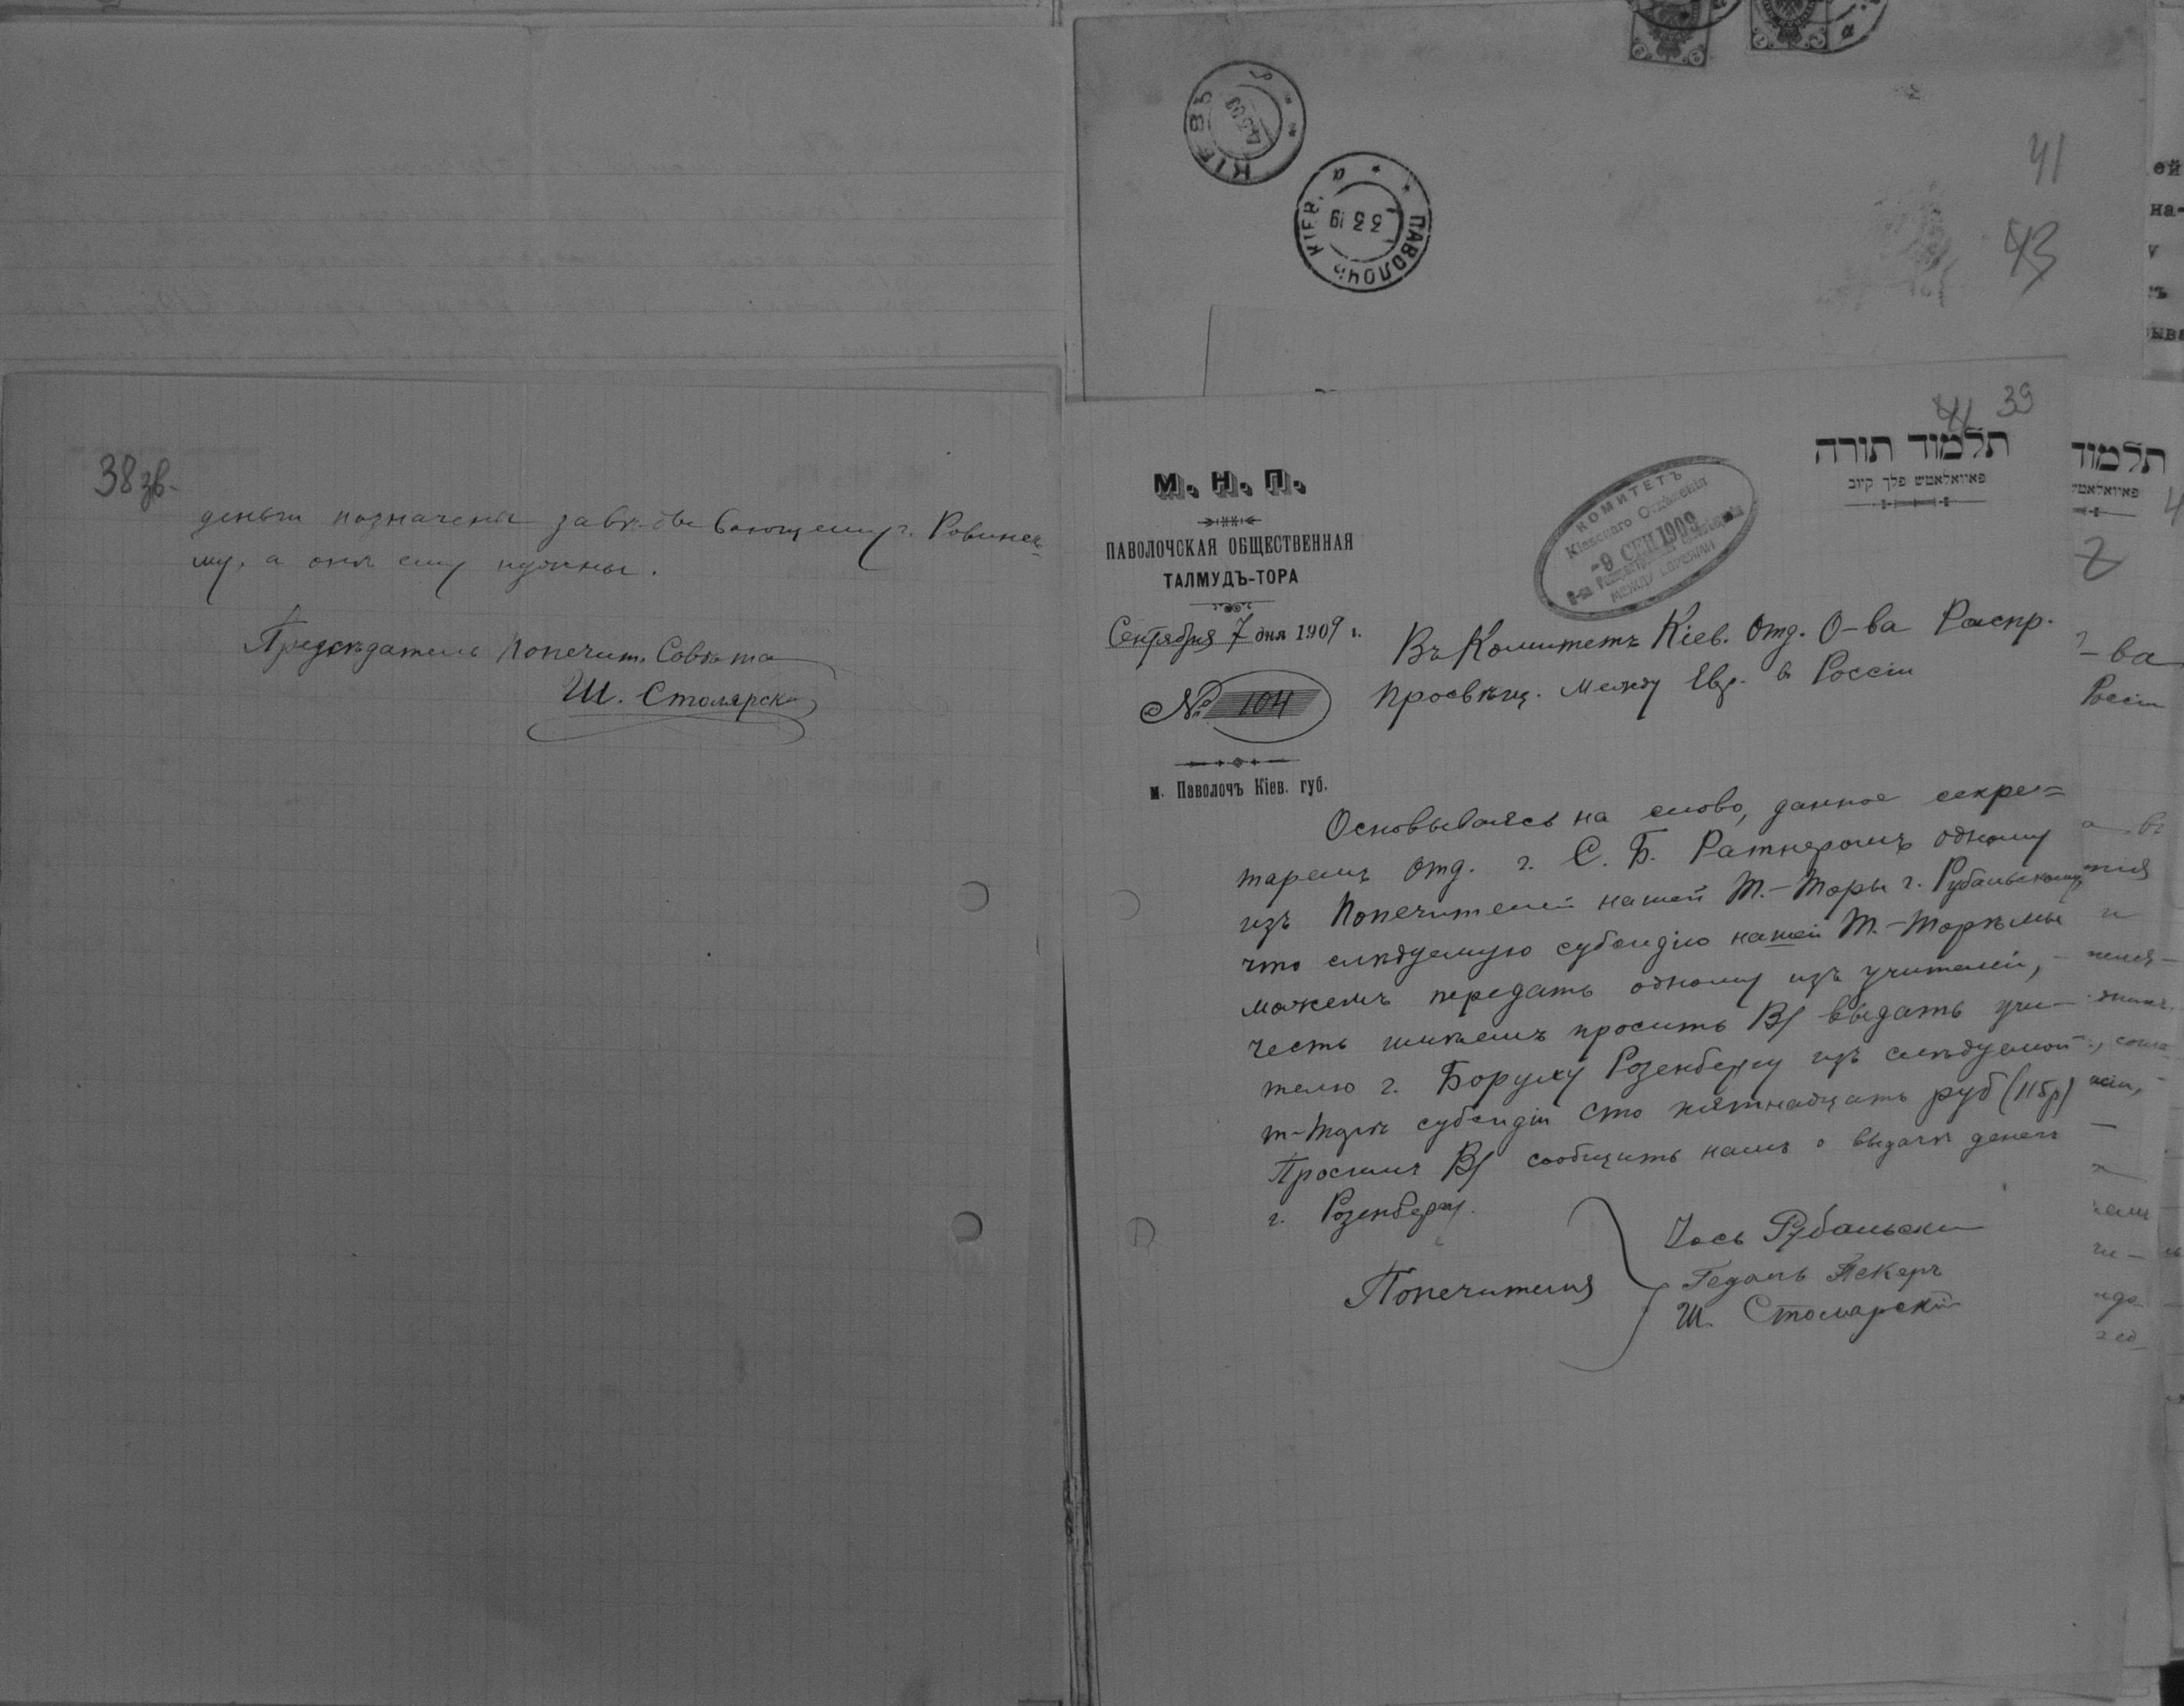 38 зв.
деньги назначены завѣдывающему г. Ровинск
му, а они ему нужны.
Предсѣдатель Попечит. Совѣта
Ш. Столярски
КІЕВЪ
ПАВОЛОЧЬ КІЕВ. а
3 3 19
41
43
41 39
М. Н. П.
ПАВОЛОЧСКАЯ ОБЩЕСТВЕННАЯ
ТАЛМУДЪ-ТОРА
Сентября 7 дня 1909 г.
№ 104
м. Паволочъ Кіев. губ.
תלמוד תורה
פאוואלאטש פלך קיוב
КОМИТЕТЪ
Кіевскаго Отдѣленія
-9 СЕН 1909
О-ва Распространенія Просвѣщенія
МЕЖДУ ЕВРЕЯМИ
Въ Комитетъ Кіев. Отд. О-ва Распр.
Просвѣщ. Между Евр. в Россіи
Основываясь на слово, данное секре=
таремъ Отд. г. С. Б. Ратнеромъ одному
изъ Попечителей нашей Т.-Торы г. Рубальскому,
что слѣдуемую субсидію нашей Т.-Торѣ мы
можемъ передать одному изъ учителей, -
честь имѣемъ просить Вѣ выдать учи-
телю г. Боруху Розенбергу изъ слѣдуемой
Т-Торѣ субсидіи сто пятнадцать руб (115р)
Просимъ Вѣ сообщить намъ о выдачѣ денегъ
г. Розенбергу.
Попечители
Іось Рубальски
Гедаль Пекеръ
Ш. Столярскій
תלמוד
-ва
Россіи
ей
на-
ыва